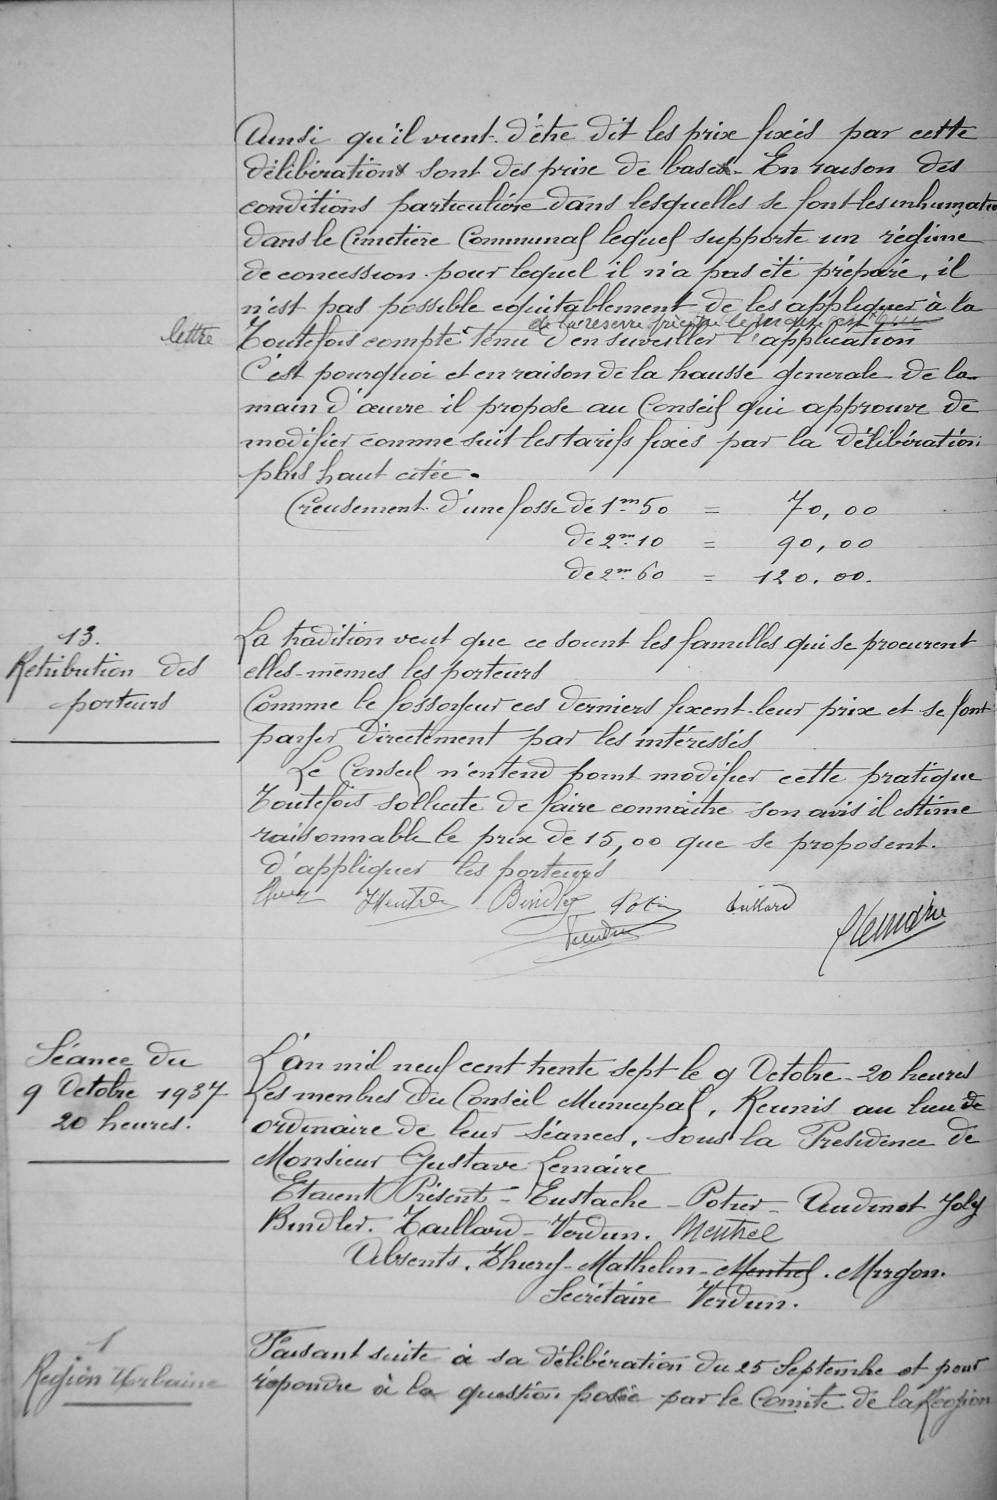 Ainsi qu'il vient d'être dit les prix fixés par cette
délibérations sont des prix de bases. En raison des
conditions particulière dans lesquelles se font les inhumatio
dans le Cimetière Communal lequel supporte un régime
de concession pour lequel il n'a pas été préparé, il
n'est pas possible equitablement de les appliquer à la
lettre
de la reserve
Toutefois compte tenu d'en surveiller l'application
C'est pourquoi et en raison de la hausse generale de la
main d'œuvre il propose au Conseil qui approuve de
modifier comme suit les tarifs fixés par la délibération
plus haut citée.
Creusement d'une fosse de 1m50 = 70,00
de 2m10 = 90,00
de 2m60 = 120.00.
13.
Retribution des
porteurs
La tradition veut que ce soient les familles qui se procurent
elles-mêmes les porteurs
Comme le fossoyeur ces derniers fixent leur prix et se font
payer directement par les intéressés
Le Conseil n'entend point modifier cette pratique
Toutefois sollicité de faire connaitre son avis il estime
raisonnable le prix de 15,00 que se proposent
d'appliquer les porteurs
Mentré Bindler Potier Taillard
Verdun Lemaire
Séance du
9 Octobre 1937
20 heures.
L'an mil neuf cent trente sept le 9 Octobre - 20 heures
Les menbres du Conseil Municipal, Reunis au lieu de
ordinaire de leur séances, sous la Presidence de
Monsieur Gustave Lemaire
Etaient Présent - Eustache - Potier - Audinot Joly
Bindler. Taillard - Verdun. Mentrel
Absents. Thiery - Mathelin - Mentrel. Murgon.
Secrétaire Verdun.
1
Region Urbaine
Faisant suite à sa délibération du 25 Septembre et pour
répondre à la question posée par le Comite de la Région